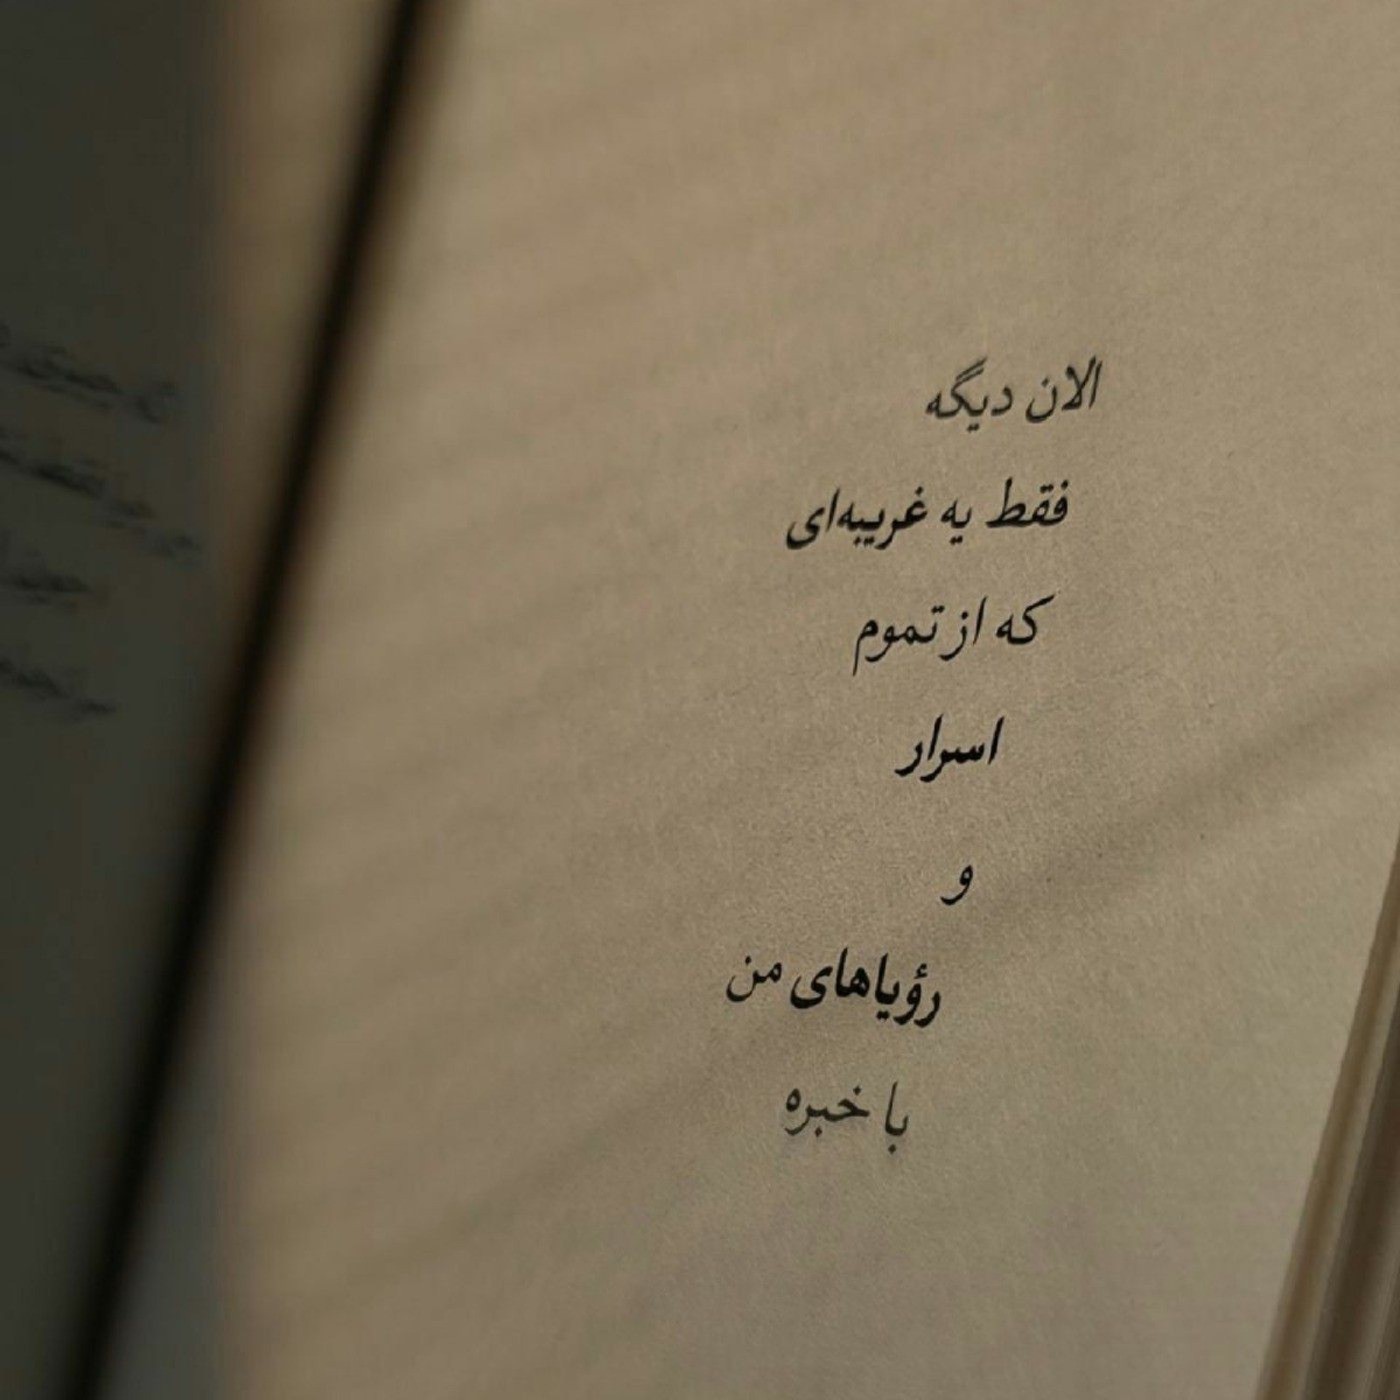 الان دیگه
فقط یه غریبه‌ای
که از تموم
اسرار
و
رؤیاهای من
با خبره